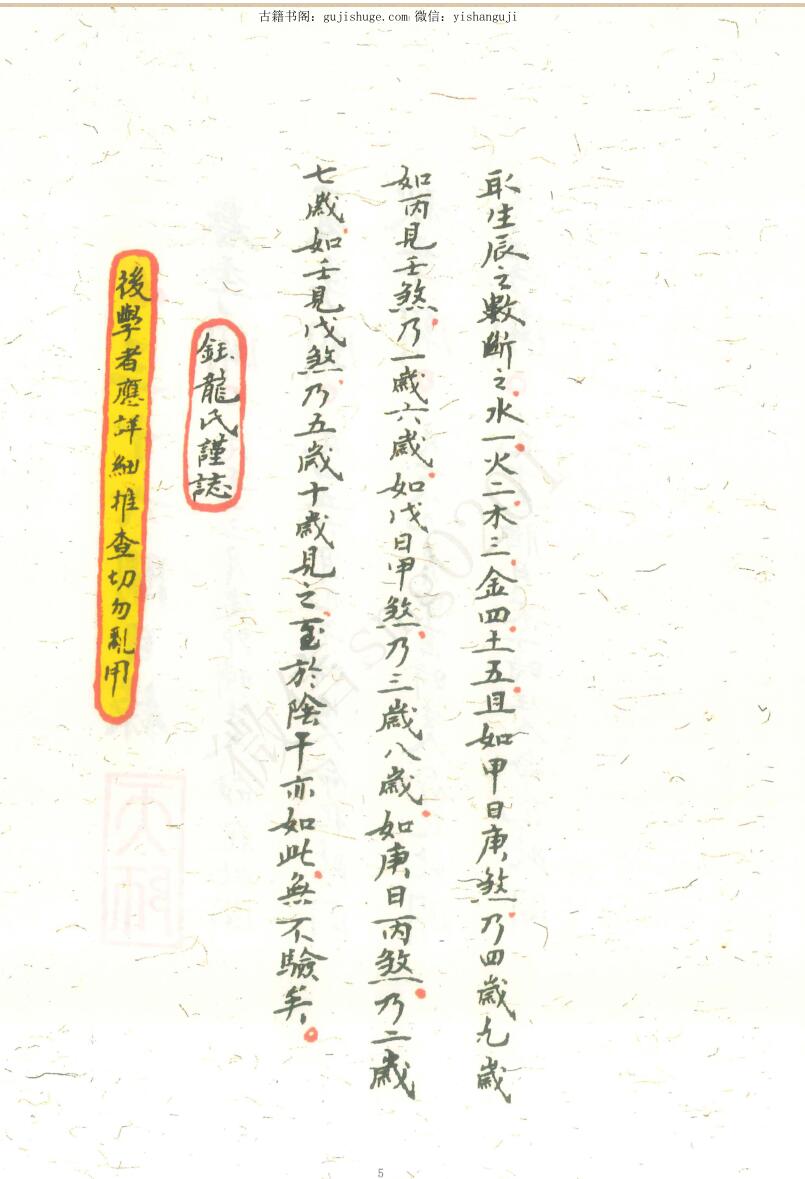 古籍书阁：gujishuge.com 微信：yishanguji
取生辰之數断之。水一火二木三金四土五且如甲日庚煞乃四歲九歲
如丙見壬煞乃一歲六歲如戊日甲煞乃三歲八歲如庚日丙煞乃二歲
七歲如壬見戊煞乃五歲十歲見之至於陰干亦如此無不驗矣。
鈺龍氏謹誌
後學者應詳細推查切勿亂用
5